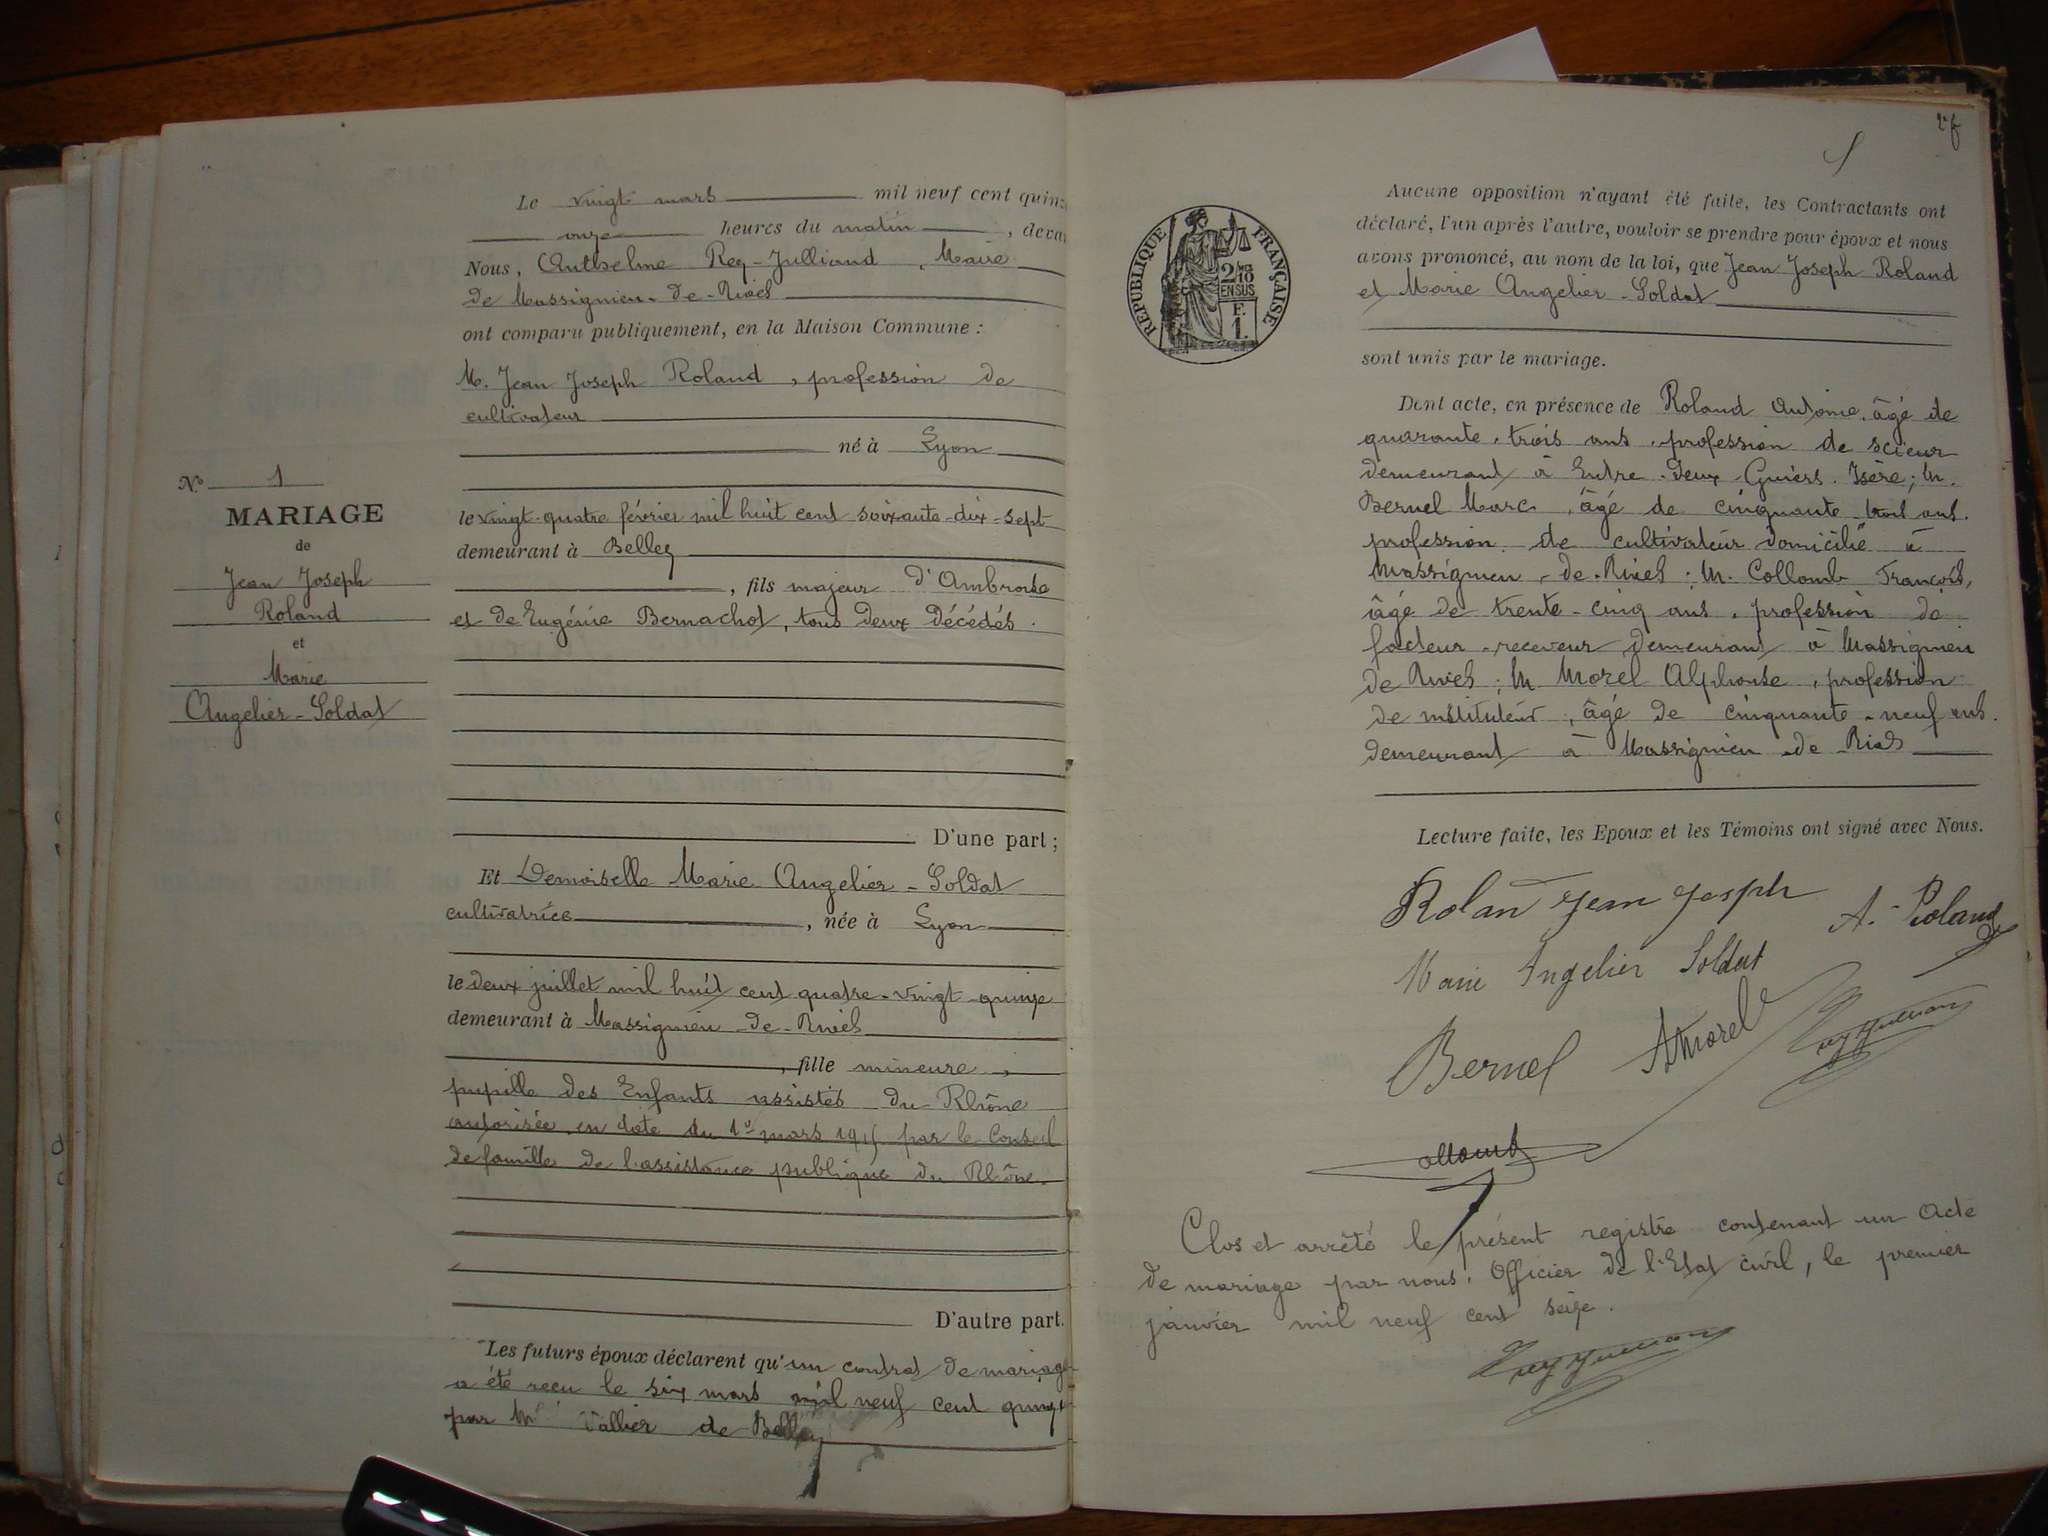 Le vingt mars mil neuf cent quinz
onze heures du matin, deva
Nous, Anthelme Rey-Julliand, Maire
de Massignieu-de-Rives
ont comparu publiquement, en la Maison Commune :
M. Jean Joseph Roland, profession de
cultivateur
né à Lyon
le vingt-quatre février mil huit cent soixante-dix-sept
demeurant à Belley
, fils majeur d'Ambroise
et de Eugénie Bernachot, tous deux décédés.
D'une part ;
Et Demoiselle Marie Angelier-Soldat
cultivatrice, née à Lyon
le deux juillet mil huit cent quatre-vingt-quinze
demeurant à Massignieu-de-Rives
, fille mineure,
pupille des Enfants assistés du Rhône
autorisée en date du 1er mars 1915 par le Conseil
de famille de l'assistance publique du Rhône.
D'autre part.
Les futurs époux déclarent qu'un contrat de mariage
a été reçu le six mars mil neuf cent quinze
par Me Vallier de Belley
No 1
MARIAGE
de
Jean Joseph
Roland
et
Marie
Angelier-Soldat
2e f
REPUBLIQUE FRANÇAISE
2/10
EN SUS
F.
1.
Aucune opposition n'ayant été faite, les Contractants ont
déclaré, l'un après l'autre, vouloir se prendre pour époux et nous
avons prononcé, au nom de la loi, que Jean Joseph Roland
et Marie Angelier-Soldat
sont unis par le mariage.
Dont acte, en présence de Roland Antoine, âgé de
quarante-trois ans, profession de scieur
demeurant à Entre-deux-Guiers, Isère; M.
Bernel Marc, âgé de cinquante-trois ans.
profession de cultivateur domicilié à
Massignieu-de-Rives; M. Collomb François,
âgé de trente-cinq ans, profession de
facteur-receveur demeurant à Massignieu
de Rives; M. Morel Alphonse, profession
de instituteur, âgé de cinquante-neuf ans.
demeurant à Massignieu-de-Rives
Lecture faite, les Epoux et les Témoins ont signé avec Nous.
Rolan Jean Josph
A. Roland
Marie Angelier Soldat
Bernel
AMorel
Rey Julliand
Collomb
Clos et arrêté le présent registre contenant un acte
de mariage par nous, Officier de l'Etat civil, le premier
janvier mil neuf cent seize.
Rey Julliand